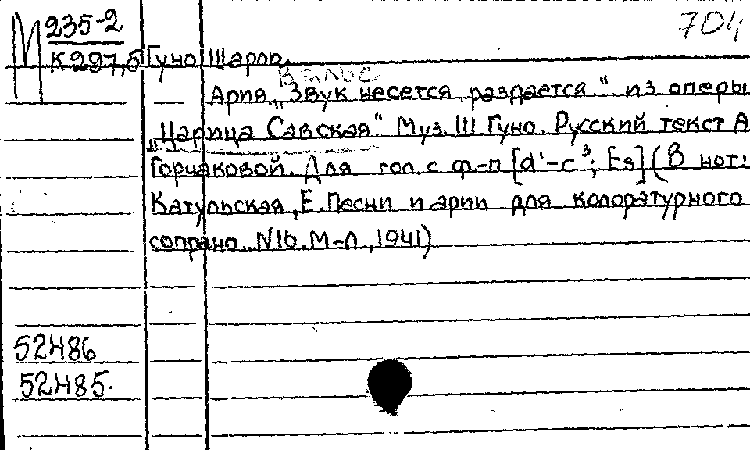 М 235-2
К 297,6
704
Гуно Шарль.
Вальс
Ария „Звук несется раздается“. из оперы
„Царица Савская“ Муз. Ш Гуно. Русский текст А
Горчаковой. Для гол. с ф-п [d¹-c³; Es] (В нот:
Катульская, Е. Песни и арии для колоратурного
сопрано. N16. М-Л., 1941)
52486
52485.